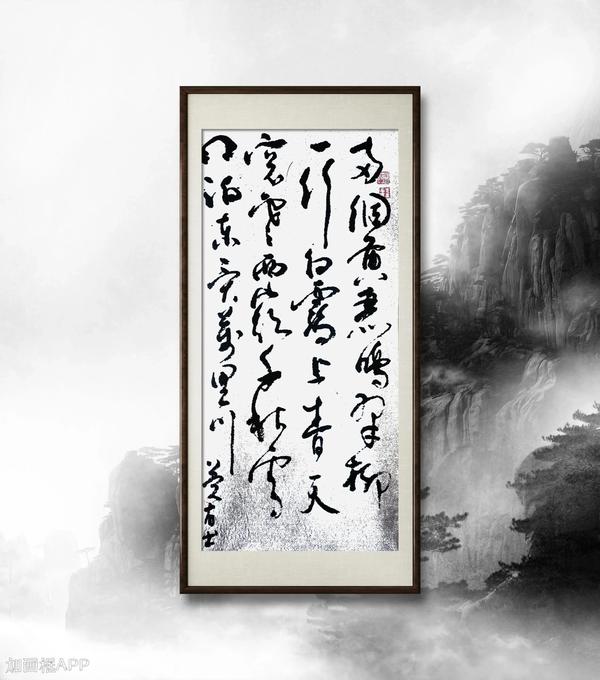 两個黄鹂鸣翠柳
一行白鹭上青天
窗寒西岭千秋雪
门泊东吴萬里川
加画框APP